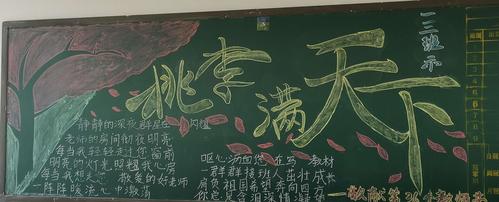 桃李满天下
一三班示
静静的深夜群星在闪耀
老师的房间彻夜明亮
每当我轻轻走过您窗前
明亮的灯光照耀我心房
每当我想起您 敬爱的好老师
一阵阵暖流心中激荡
呕心沥血您在写教材
一群群接班人茁壮成长
肩负祖国希望奔向四方
您总是含泪深情凝
一敬献第36个教师节